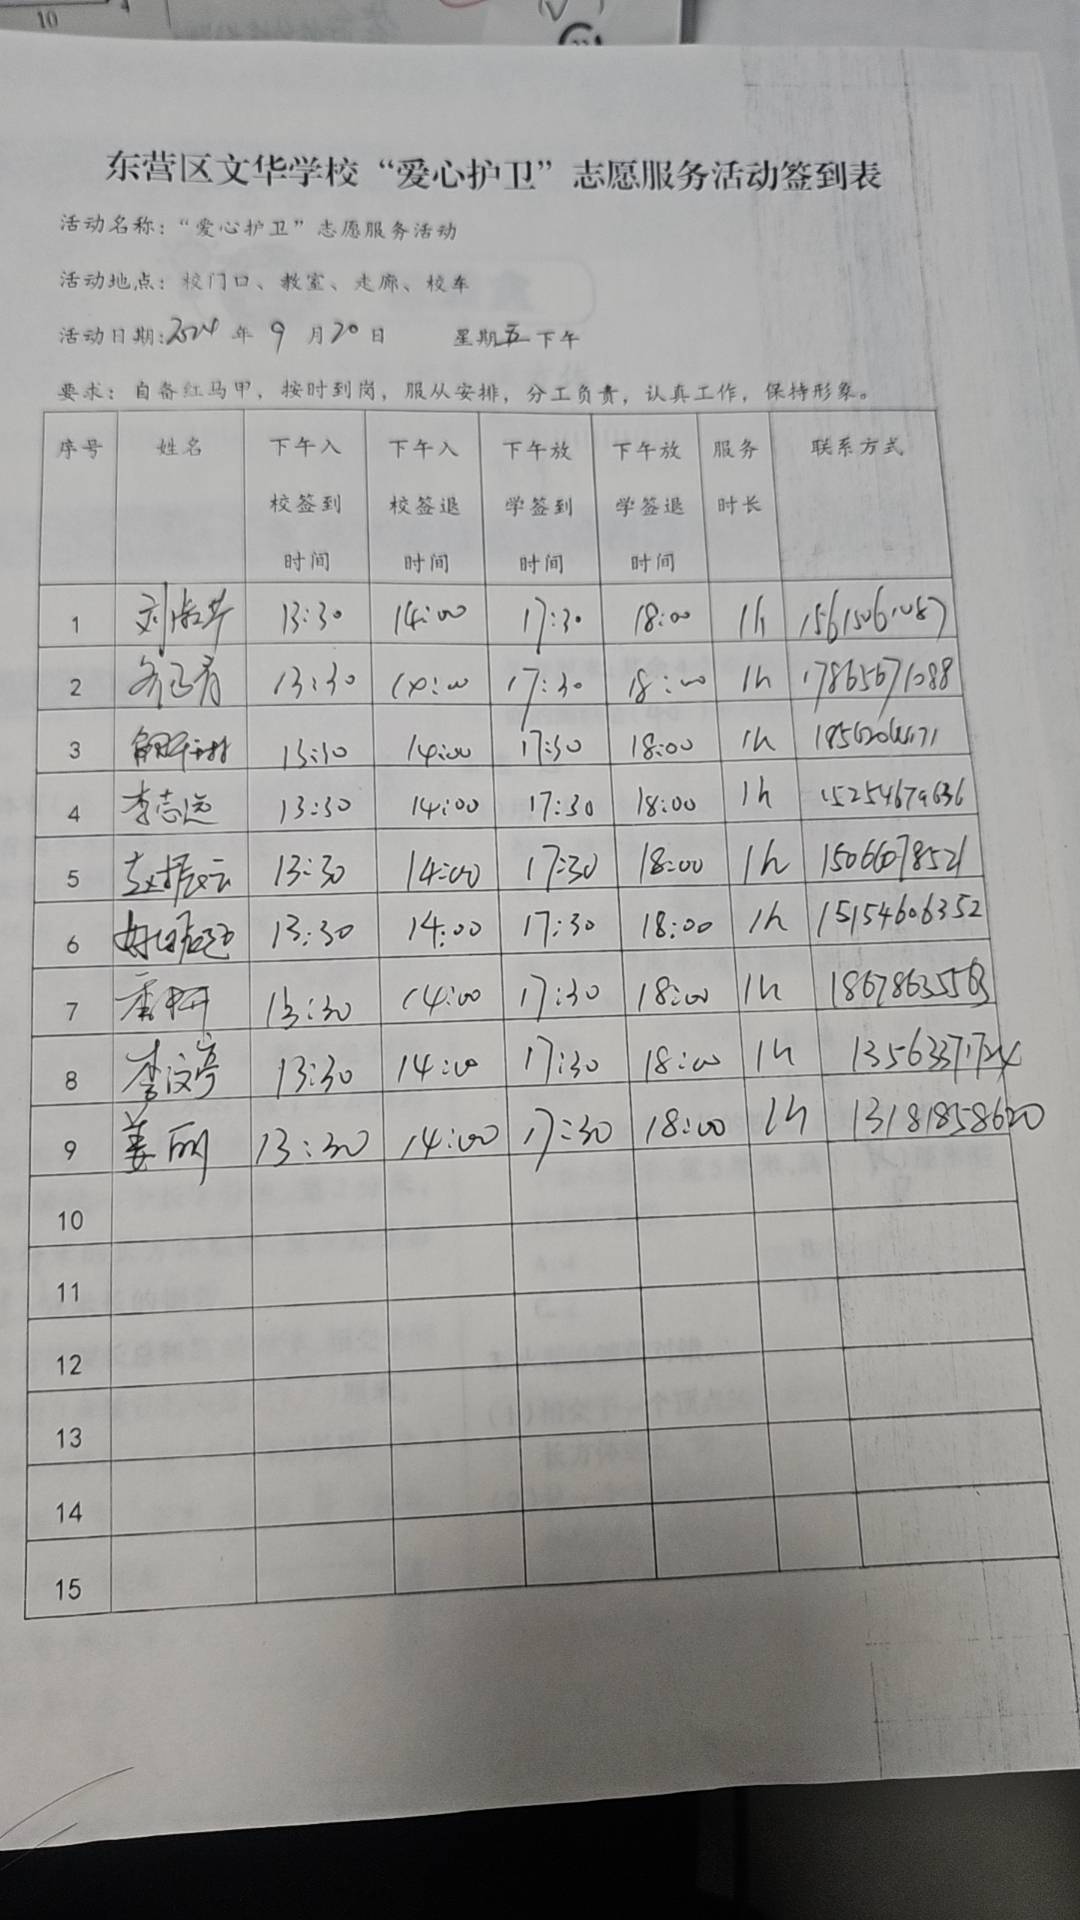 东营区文华学校“爱心护卫”志愿服务活动签到表
活动名称：“爱心护卫”志愿服务活动
活动地点：校门口、教室、走廊、校车
活动日期：2024 年 9 月 20 日 星期五下午
要求：自备红马甲，按时到岗，服从安排，分工负责，认真工作，保持形象。
序号 姓名 下午入校签到时间 下午入校签退时间 下午放学签到时间 下午放学签退时间 服务时长 联系方式
1 13:30 14:00 17:30 18:00 1h
2 13:30 14:00 17:30 18:00 1h 17865671088
3 13:30 14:00 17:30 18:00 1h
4 李志远 13:30 14:00 17:30 18:00 1h 15254679636
5 赵振云 13:30 14:00 17:30 18:00 1h 15066078521
6 13:30 14:00 17:30 18:00 1h 15154606352
7 13:30 14:00 17:30 18:00 1h 18678635563
8 李文亭 13:30 14:00 17:30 18:00 1h
9 姜丽 13:30 14:00 17:30 18:00 1h 13181858620
10
11
12
13
14
15